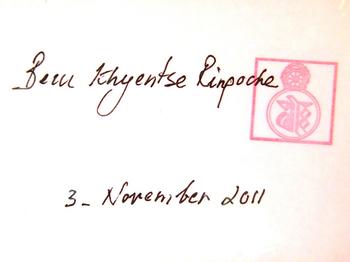 Beru Khyentse Rinpoche
3- November 2011